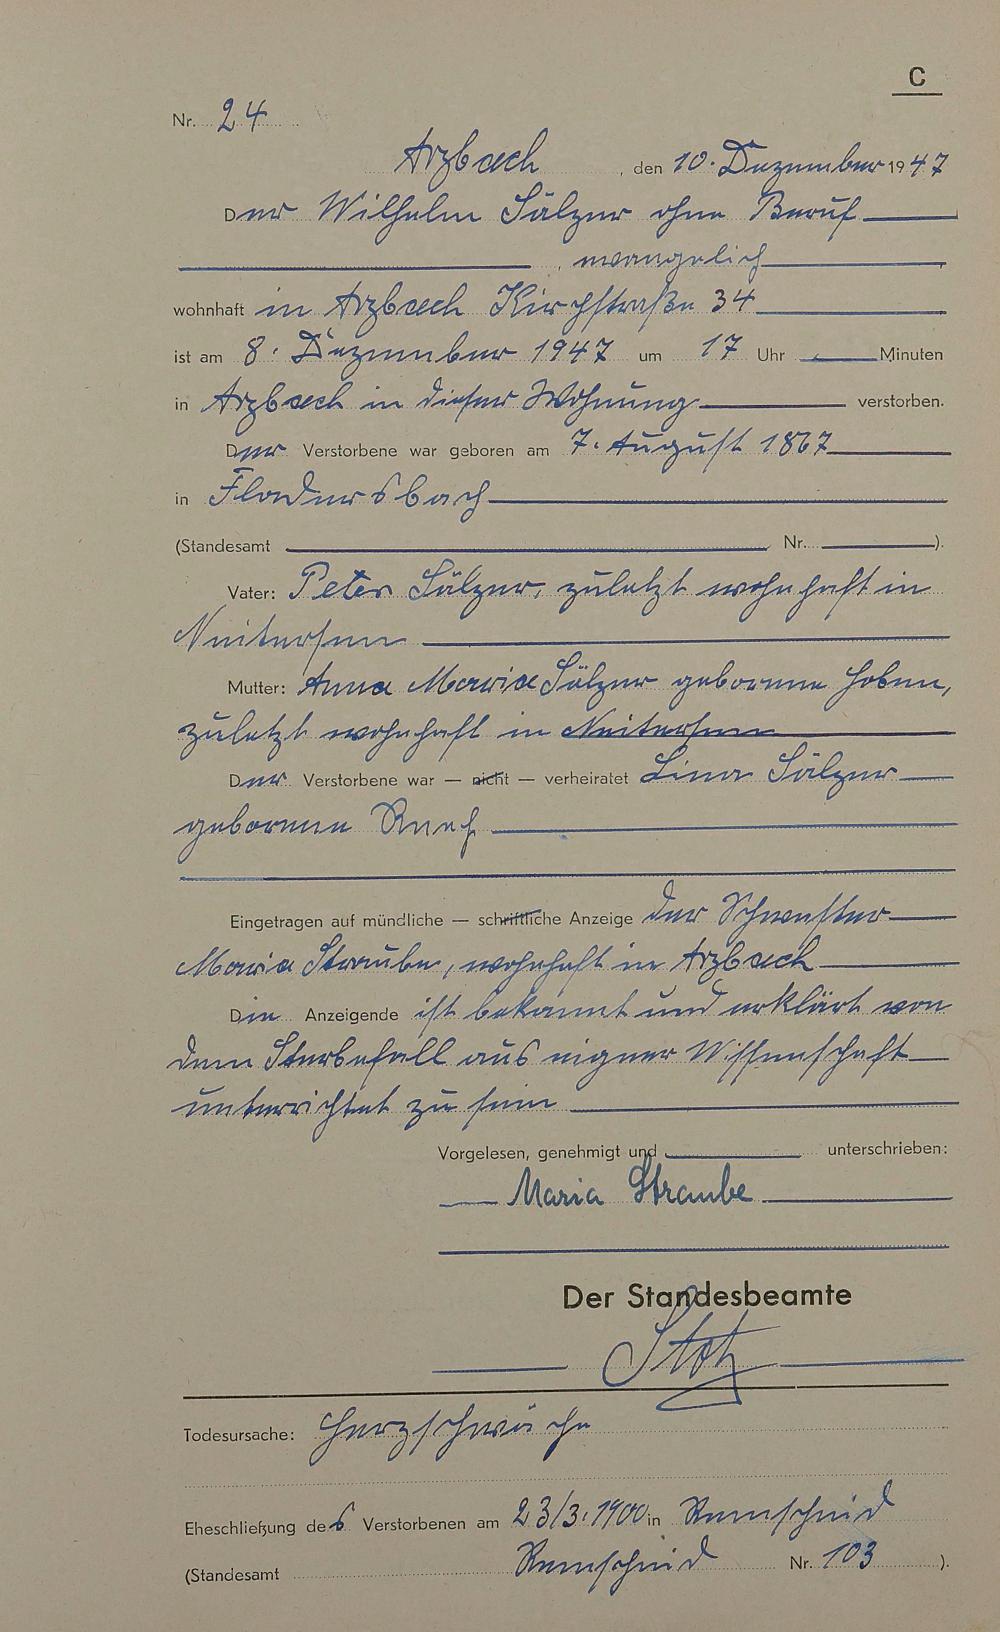 C
Nr. 24
Arzbach, den 10. Dezember 1947
Der Wilhelm Sälzer ohne Beruf
, evangelisch
wohnhaft in Arzbach Kirchstraße 34
ist am 8. Dezember 1947 um 17 Uhr Minuten
in Arzbach in dieser Wohnung verstorben.
Der Verstorbene war geboren am 7. August 1867
in Fladersbach
(Standesamt Nr. ).
Vater: Peter Sälzer, zuletzt wohnhaft in
Neitersen
Mutter: Anna Maria Sälzer geborene Hoben,
zuletzt wohnhaft in Neitersen
Der Verstorbene war — nicht — verheiratet Lina Sälzer
geborene
Eingetragen auf mündliche — schriftliche Anzeige der Schwester
Maria Straube, wohnhaft in Arzbach
Die Anzeigende ist bekannt und erklärt von
dem Sterbefall aus eigner Wissenschaft
unterrichtet zu sein
Vorgelesen, genehmigt und unterschrieben:
Maria Straube
Der Standesbeamte
Stotz
Todesursache: Herzschwäche
Eheschließung des Verstorbenen am 23/3.1900 in Remscheid
(Standesamt Remscheid Nr. 103 ).